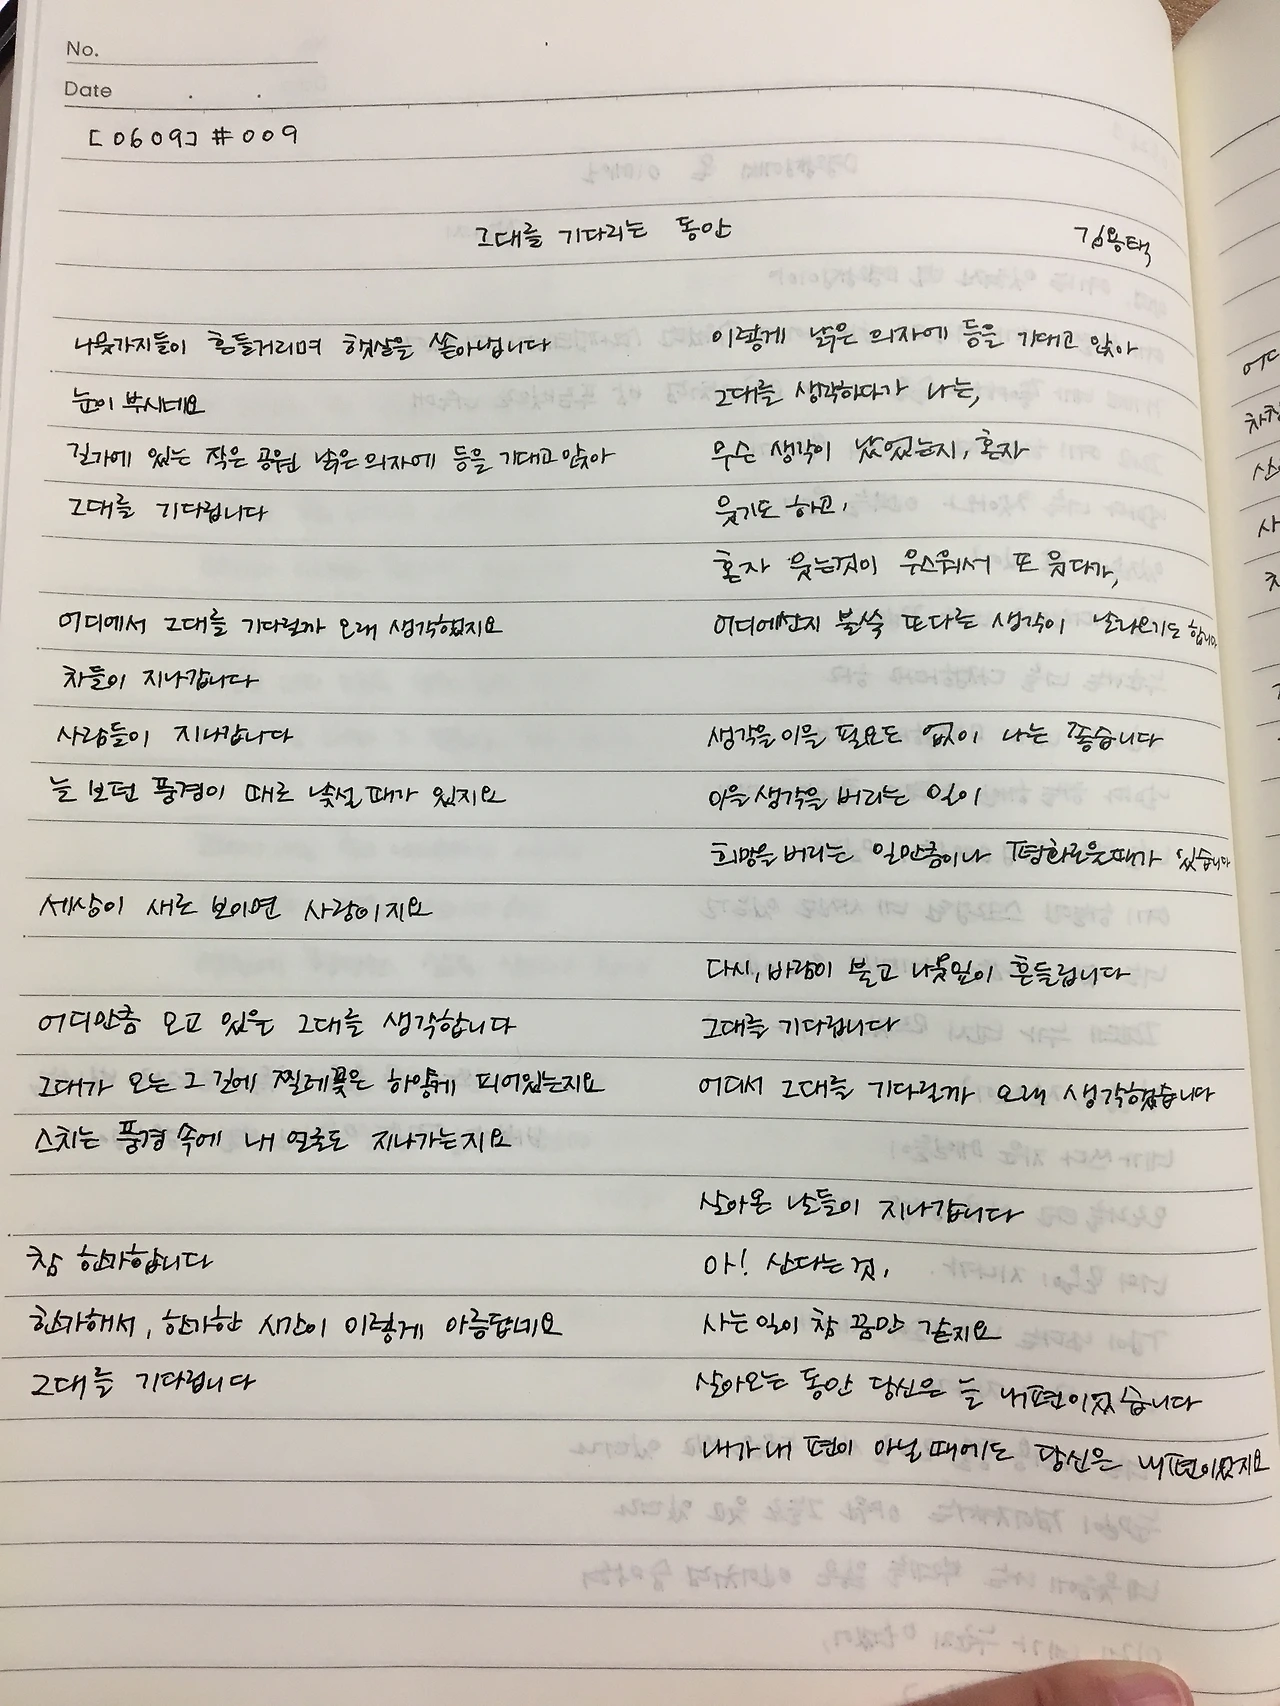 No.
Date . .
[0609] #009
그대를 기다리는 동안 김용택
나뭇가지들이 흔들거리며 햇살을 쏟아냅니다
눈이 부시네요
길가에 있는 작은 공원 낡은 의자에 등을 기대고 앉아
그대를 기다립니다
어디에서 그대를 기다릴까 오래 생각했지요
차들이 지나갑니다
사람들이 지나갑니다
늘 보던 풍경이 때로 낯설 때가 있지요
세상이 새로 보이면 사랑이지요
어디만큼 오고 있을 그대를 생각합니다
그대가 오는 그 길에 찔레꽃은 하얗게 피어있는지요
스치는 풍경 속에 내 얼굴도 지나가는지요
참 한가합니다
한가해서, 한가한 시간이 이렇게 아름답네요
그대를 기다립니다
이렇게 낡은 의자에 등을 기대고 앉아
그대를 생각하다가 나는,
무슨 생각이 났었는지, 혼자
웃기도 하고,
혼자 웃는것이 우스워서 또 웃다가,
어디에선지 불쑥 또다른 생각이 날아오기도 합니다
생각을 이을 필요도 없이 나는 좋습니다
이을 생각을 버리는 일이
희망을 버리는 일만큼이나 평화로울때가 있습니다
다시, 바람이 불고 나뭇잎이 흔들립니다
그대를 기다립니다
어디서 그대를 기다릴까 오래 생각했습니다
살아온 날들이 지나갑니다
아! 산다는 것,
사는 일이 참 꿈만 같지요
살아오는 동안 당신은 늘 내편이었습니다
내가 내 편이 아닐 때에도 당신은 내편이었지요